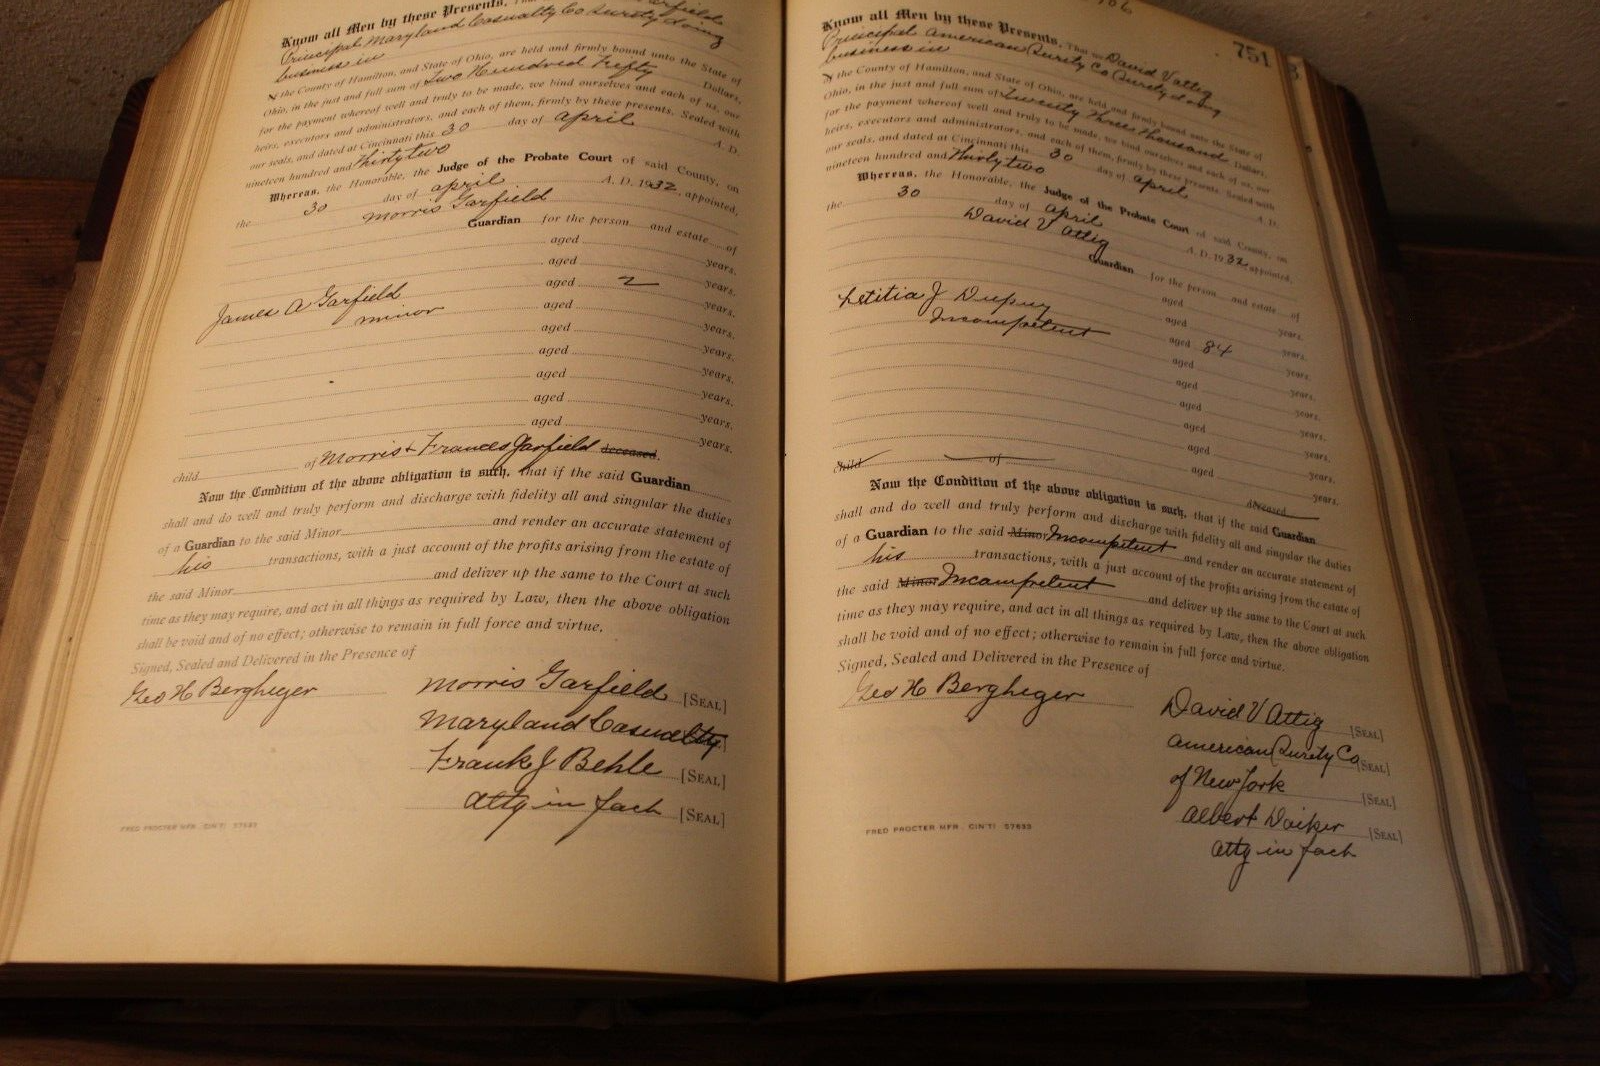 Know all Men by these Presents, That
Principal Maryland Casualty Co Surety doing
business in
the County of Hamilton, and State of Ohio, are held and firmly bound unto the State of
Ohio, in the just and full sum of Two Hundred Fifty Dollars,
for the payment whereof well and truly to be made, we bind ourselves and each of us, our
heirs, executors and administrators, and each of them, firmly by these presents. Sealed with
our seals, and dated at Cincinnati this 30 day of April A. D.
nineteen hundred and Thirty two
Whereas, the Honorable, the Judge of the Probate Court of said County, on
the 30 day of April A. D. 1932, appointed,
Morris Garfield
Guardian for the person and estate of
aged years.
aged years.
James A Garfield aged 2 years.
minor aged years.
aged years.
aged years.
aged years.
aged years.
aged years.
child of Morris & Frances Garfield deceased.
Now the Condition of the above obligation is such, that if the said Guardian
shall and do well and truly perform and discharge with fidelity all and singular the duties
of a Guardian to the said Minor and render an accurate statement of
his transactions, with a just account of the profits arising from the estate of
the said Minor and deliver up the same to the Court at such
time as they may require, and act in all things as required by Law, then the above obligation
shall be void and of no effect; otherwise to remain in full force and virtue.
Signed, Sealed and Delivered in the Presence of
Geo H Bergheger Morris Garfield [SEAL]
Maryland Casualty
Frank J Behle [SEAL]
Atty in fact [SEAL]
FRED PROCTER MFR. CIN'TI 57633
751
Know all Men by these Presents, That we David V Attig
Principal American Surety Co Surety doing
business in
the County of Hamilton, and State of Ohio, are held and firmly bound unto the State of
Ohio, in the just and full sum of Twenty Three thousand Dollars,
for the payment whereof well and truly to be made, we bind ourselves and each of us, our
heirs, executors and administrators, and each of them, firmly by these presents. Sealed with
our seals, and dated at Cincinnati this 30 day of April A. D.
nineteen hundred and Thirty two
Whereas, the Honorable, the Judge of the Probate Court of said County, on
the 30 day of April A. D. 1932 appointed,
David V Attig
Guardian for the person and estate of
aged years.
Letitia J Dupuy aged years.
Incompetent aged 84 years.
aged years.
aged years.
aged years.
aged years.
aged years.
aged years.
child of deceased
Now the Condition of the above obligation is such, that if the said Guardian
shall and do well and truly perform and discharge with fidelity all and singular the duties
of a Guardian to the said Minor Incompetent and render an accurate statement of
his transactions, with a just account of the profits arising from the estate of
the said Minor Incompetent and deliver up the same to the Court at such
time as they may require, and act in all things as required by Law, then the above obligation
shall be void and of no effect; otherwise to remain in full force and virtue.
Signed, Sealed and Delivered in the Presence of
Geo H Bergheger David V Attig [SEAL]
American Surety Co [SEAL]
of New York [SEAL]
Albert Daiker [SEAL]
Atty in fact
FRED PROCTER MFR. CIN'TI 57633